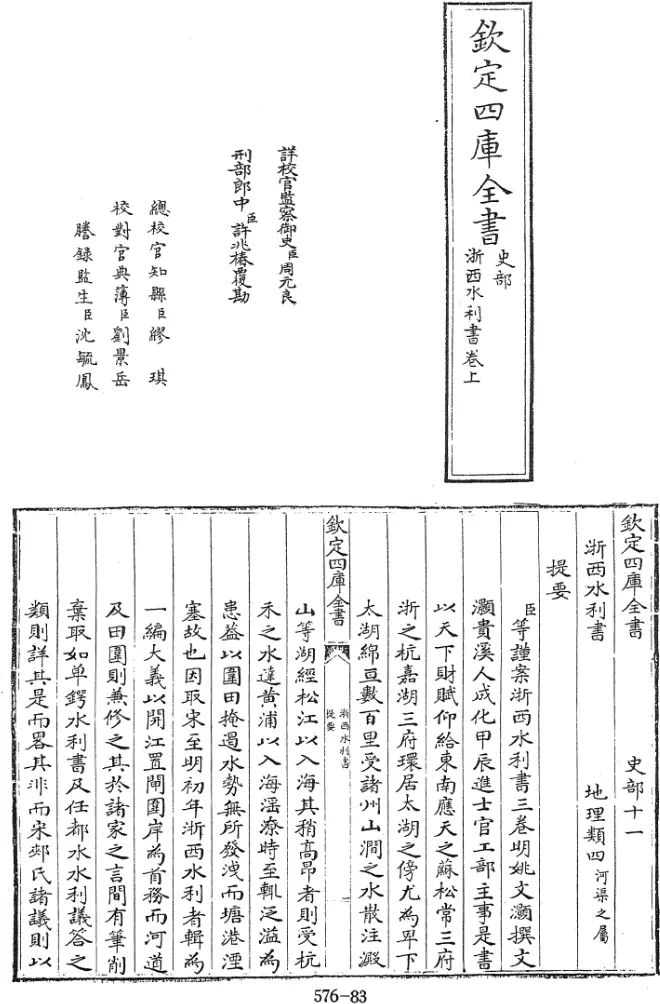 欽定四庫全書
史部
浙西水利書卷上
詳校官監察御史臣周元良
刑部郎中臣許兆椿覆勘
總校官知縣臣繆琪
校對官典簿臣劉景岳
謄錄監生臣沈毓鳳
欽定四庫全書 史部十一
浙西水利書 地理類四河渠之屬
提要
臣等謹案浙西水利書三卷明姚文灝撰文
灝貴溪人成化甲辰進士官工部主事是書
以天下財賦仰給東南應天之蘇松常三府
浙之杭嘉湖三府環居太湖之傍尤為卑下
太湖綿亘數百里受諸州山澗之水散注澱
欽定四庫全書
浙西水利書
提要
山等湖經松江以入海其稍高昂者則受杭
禾之水達黄浦以入海滛潦時至輒泛溢為
患葢以圍田掩遏水勢無所發洩而塘港湮
塞故也因取宋至明初年浙西水利者輯為
一編大義以開江置閘圍岸為首務而河道
及田圍則兼修之其於諸家之言間有筆削
棄取如单鍔水利書及任都水水利議答之
類則詳其是而畧其非而宋郟氏諸議則以
576-83